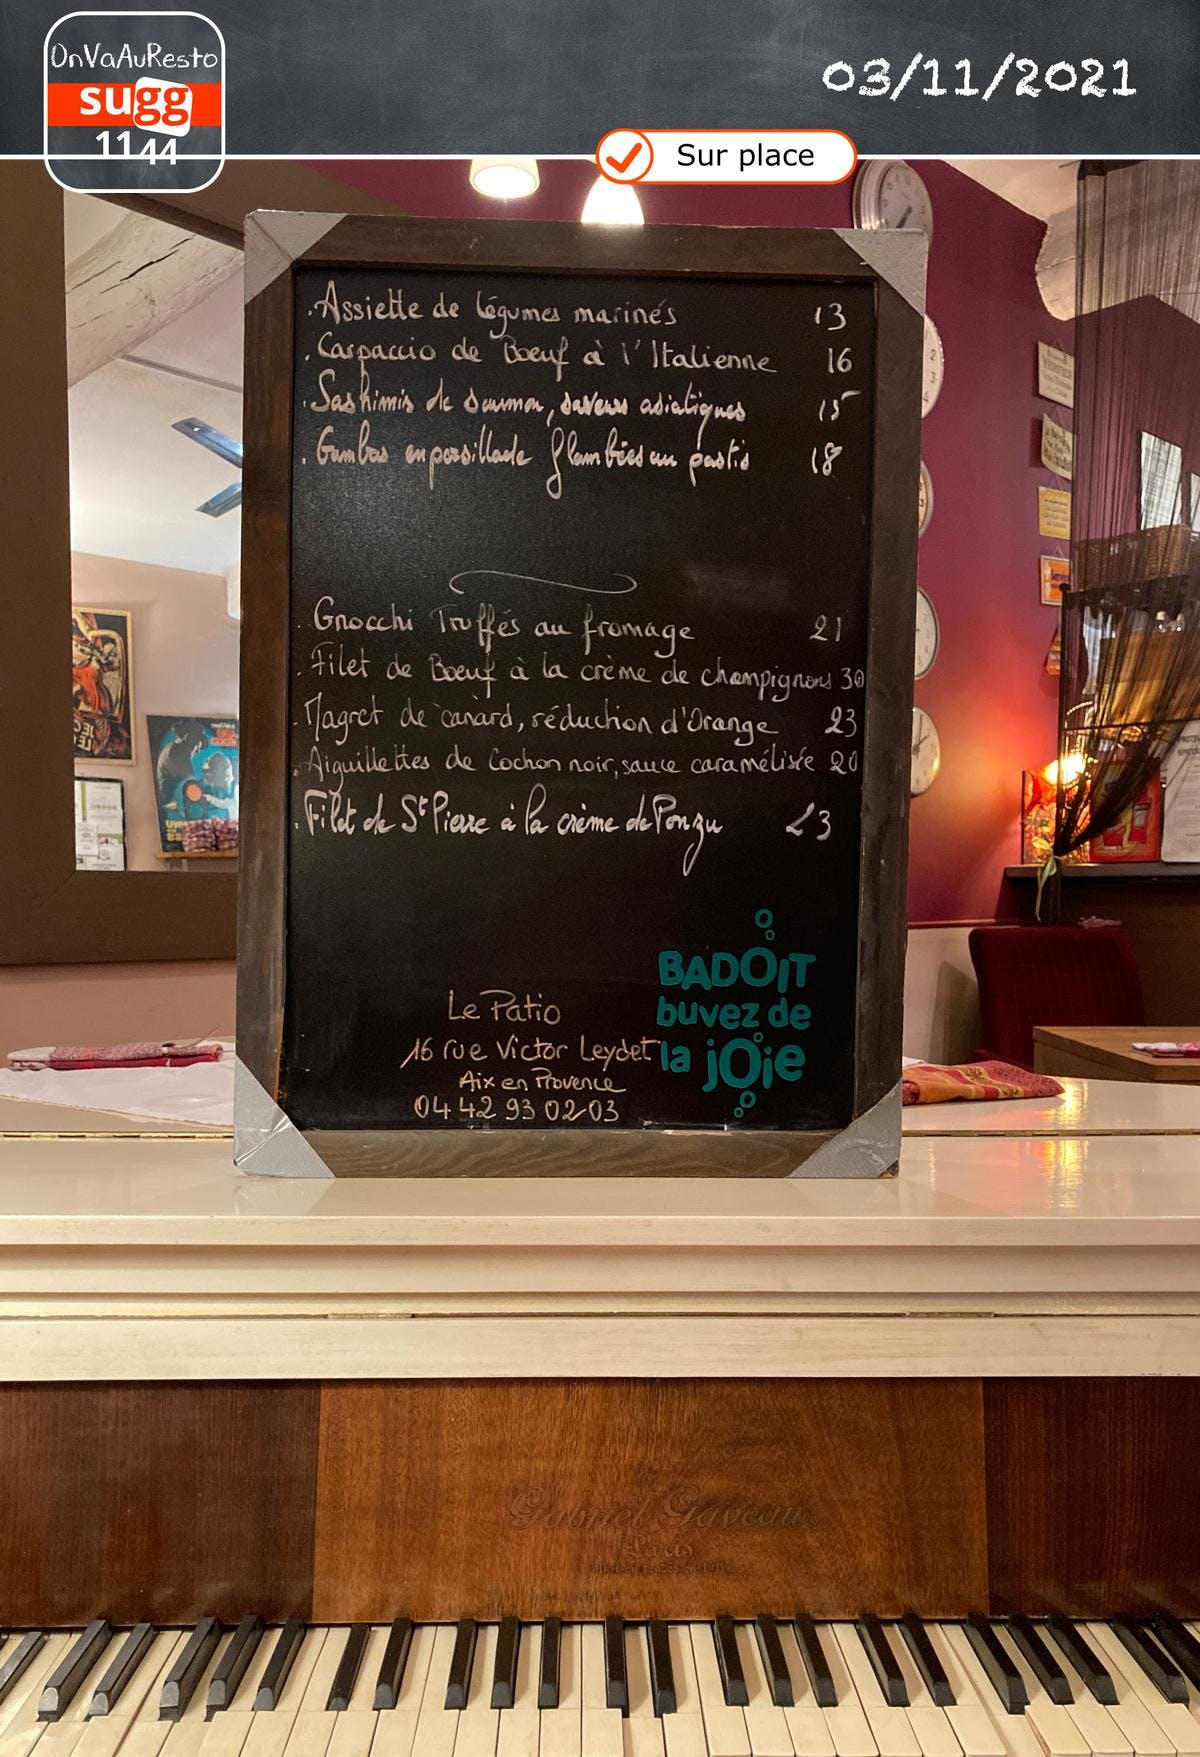 OnVaAuResto
sugg
1144
03/11/2021
Sur place
.Assiette de légumes marinés 13
.Carpaccio de Boeuf à l'Italienne 16
.Sashimis de saumon, saveurs asiatiques 15
.Gambas en persillade flambées au pastis 18
.Gnocchi Truffés au fromage 21
.Filet de Boeuf à la crème de champignons 30
.Magret de canard, réduction d'Orange 23
.Aiguillettes de Cochon noir, sauce caramélisée 20
.Filet de St Pierre à la crème de Ponzu 23
BADOIT
buvez de
la jOie
Le Patio
16 rue Victor Leydet
Aix en Provence
04 42 93 02 03
Gabriel Gaveau
Paris